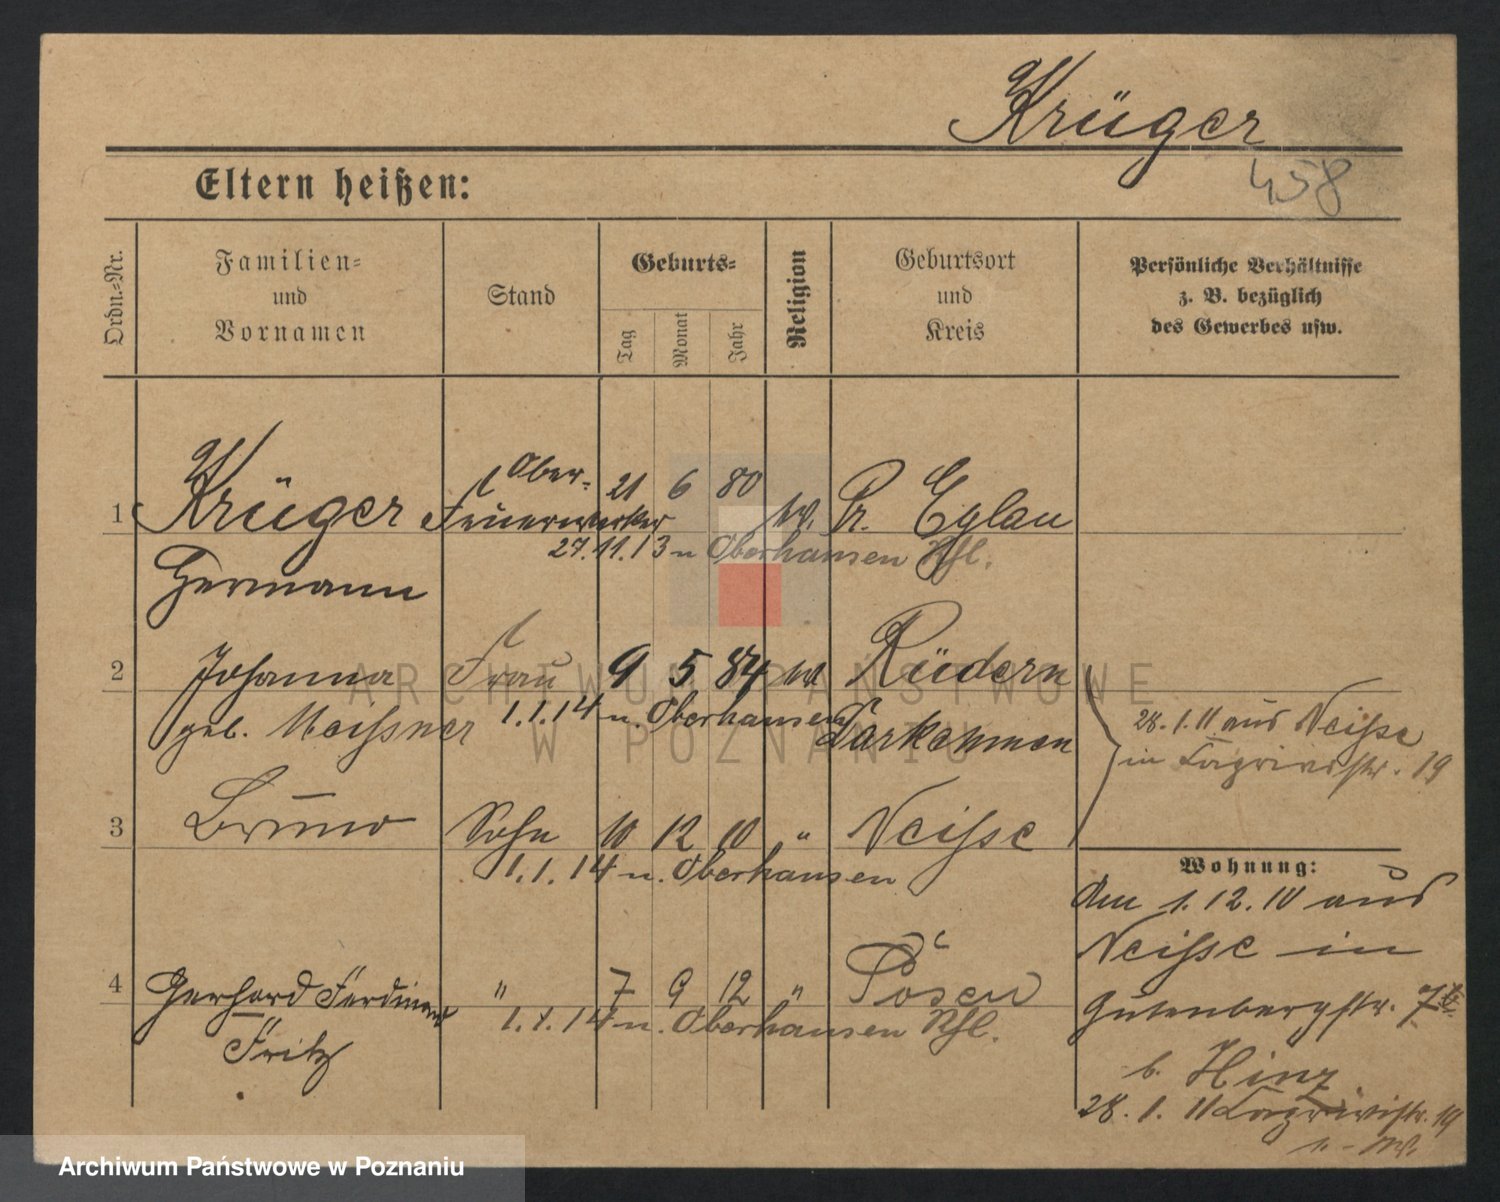 Krüger
458
Eltern heißen:
Ordn.-Nr.
Familien-
und
Vornamen
Stand
Geburts-
Tag
Monat
Jahr
Religion
Geburtsort
und
Kreis
Persönliche Verhältnisse
z. B. bezüglich
des Gewerbes usw.
Ober-
1 Krüger Feuerwerker 21 6 80 ev. Pr. Eylau
27.11.13 n Oberhausen Rhl.
Hermann
2 Johanna Frau 9 5 84 ev Rüdern
geb. Meissner 1.1.14 n. Oberhausen Darkehmen
28.1.11 aus Neisse
in 19
3 Bruno Sohn 10 12 10 " Neisse
1.1.14 n. Oberhausen
Wohnung:
den 1.12.10 aus
Neisse in
4 Gerhard Ferdinand " 7 9 12 " Posen
1.1.14 n. Oberhausen Rhl.
Fritz
Gutenbergstr. 7
b. Hinz
28.1.11 19
ARCHIWUM PAŃSTWOWE
W POZNANIU
Archiwum Państwowe w Poznaniu